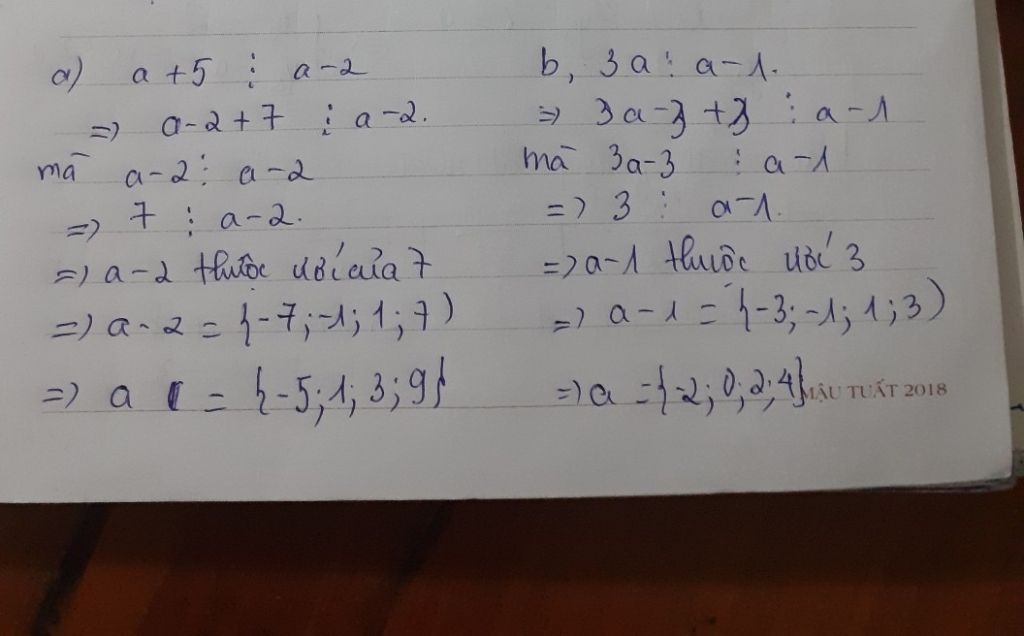 a) a+5 ⋮ a-2
=> a-2+7 ⋮ a-2.
mà a-2 ⋮ a-2
=> 7 ⋮ a-2.
=> a-2 thuộc ước của 7
=> a-2 = {-7;-1;1;7)
=> a = {-5;1;3;9}
b, 3a ⋮ a-1.
=> 3a-3+3 ⋮ a-1
mà 3a-3 ⋮ a-1
=> 3 ⋮ a-1.
=> a-1 thuộc ước 3
=> a-1 = {-3;-1;1;3)
=> a = {-2;0;2;4}
MẬU TUẤT 2018